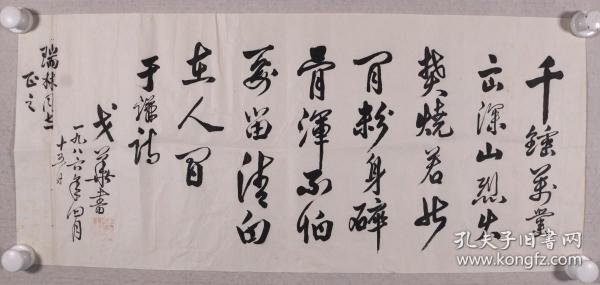 千錘萬鑿
出深山烈火
焚燒若等
閒粉身碎
骨渾不怕
要留清白
在人間
于謙詩
戈華書
一九八六年四月
十五日
瑞林同志
正之
孔夫子旧书网
www.kongfz.com